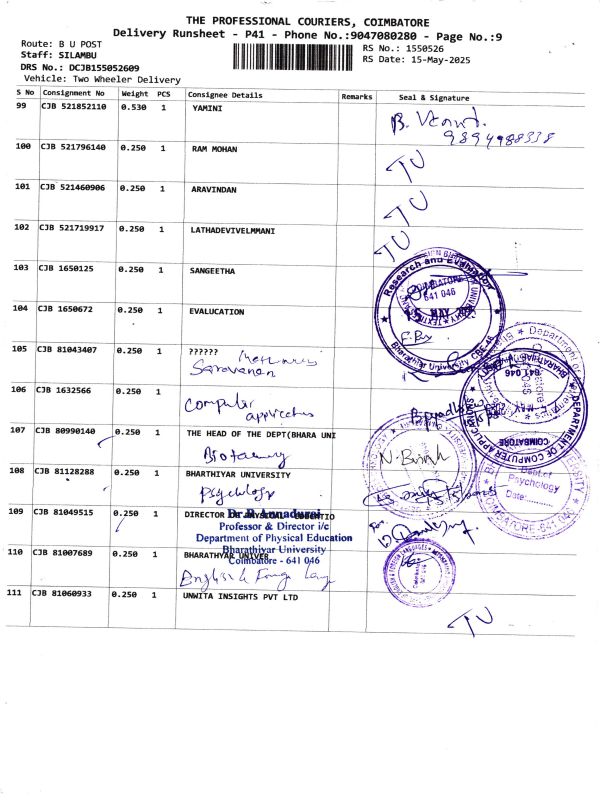 THE PROFESSIONAL COURIERS, COIMBATORE
Delivery Runsheet - P41 - Phone No.:9047080280 - Page No.:9
Route: B U POST
Staff: SILAMBU
DRS No.: DCJB155052609
Vehicle: Two Wheeler Delivery
RS No.: 1550526
RS Date: 15-May-2025
S No Consignment No Weight PCS Consignee Details Remarks Seal & Signature
99 CJB 521852110 0.530 1 YAMINI
9894988338
100 CJB 521796140 0.250 1 RAM MOHAN
TU
101 CJB 521460906 0.250 1 ARAVINDAN
TU
102 CJB 521719917 0.250 1 LATHADEVIVELMMANI
TU
103 CJB 1650125 0.250 1 SANGEETHA
Research and Evaluation
COIMBATORE
641 046
15 MAY
Bharathiar University CBE-46
104 CJB 1650672 0.250 1 EVALUCATION
105 CJB 81043407 0.250 1 ??????
Saravanan
106 CJB 1632566 0.250 1
Computer
DEPARTMENT OF COMPUTER APPLICATIONS
BHARATHIAR
641 046
COIMBATORE
107 CJB 80990140 0.250 1 THE HEAD OF THE DEPT(BHARA UNI
108 CJB 81128288 0.250 1 BHARTHIYAR UNIVERSITY
Psychology
Dept.of
Psychology
Date:
COIMBATORE-641 046
109 CJB 81049515 0.250 1 DIRECTOR
Professor & Director i/c
Department of Physical Education
Bharathiyar University
Coimbatore - 641 046
110 CJB 81007689 0.250 1 BHARATHYAR UNIVER
English &
111 CJB 81060933 0.250 1 UNWITA INSIGHTS PVT LTD
TU